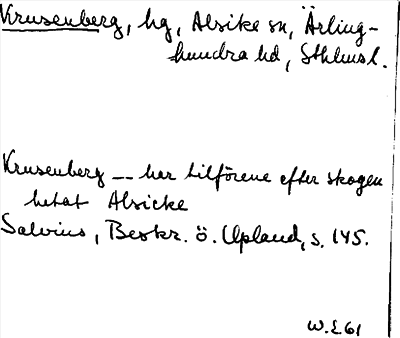 Krusenberg, hg, Alsike sn, Ärling-
hundra hd, Sthlmsl.
Krusenberg -- har tilförene efter skogen
hetat Alsicke
Salvius, Beskr. ö. Upland, s. 145.
W.E 61